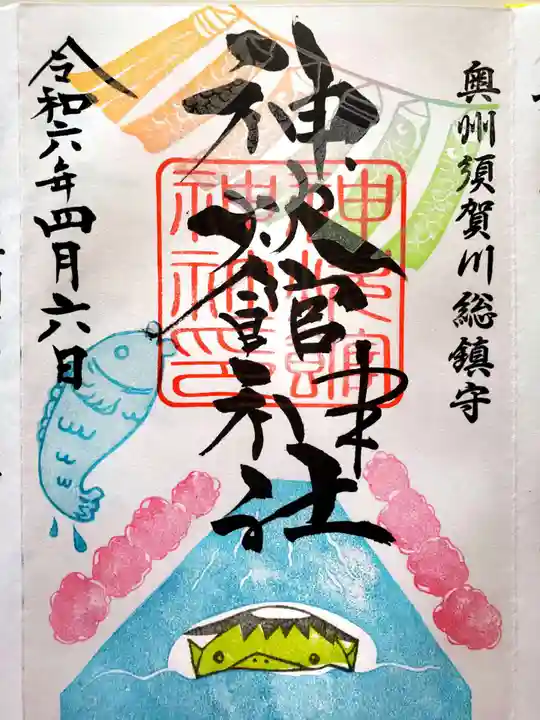 奥州須賀川総鎮守
神炊館神社
令和六年四月六日
神炊館
神社印